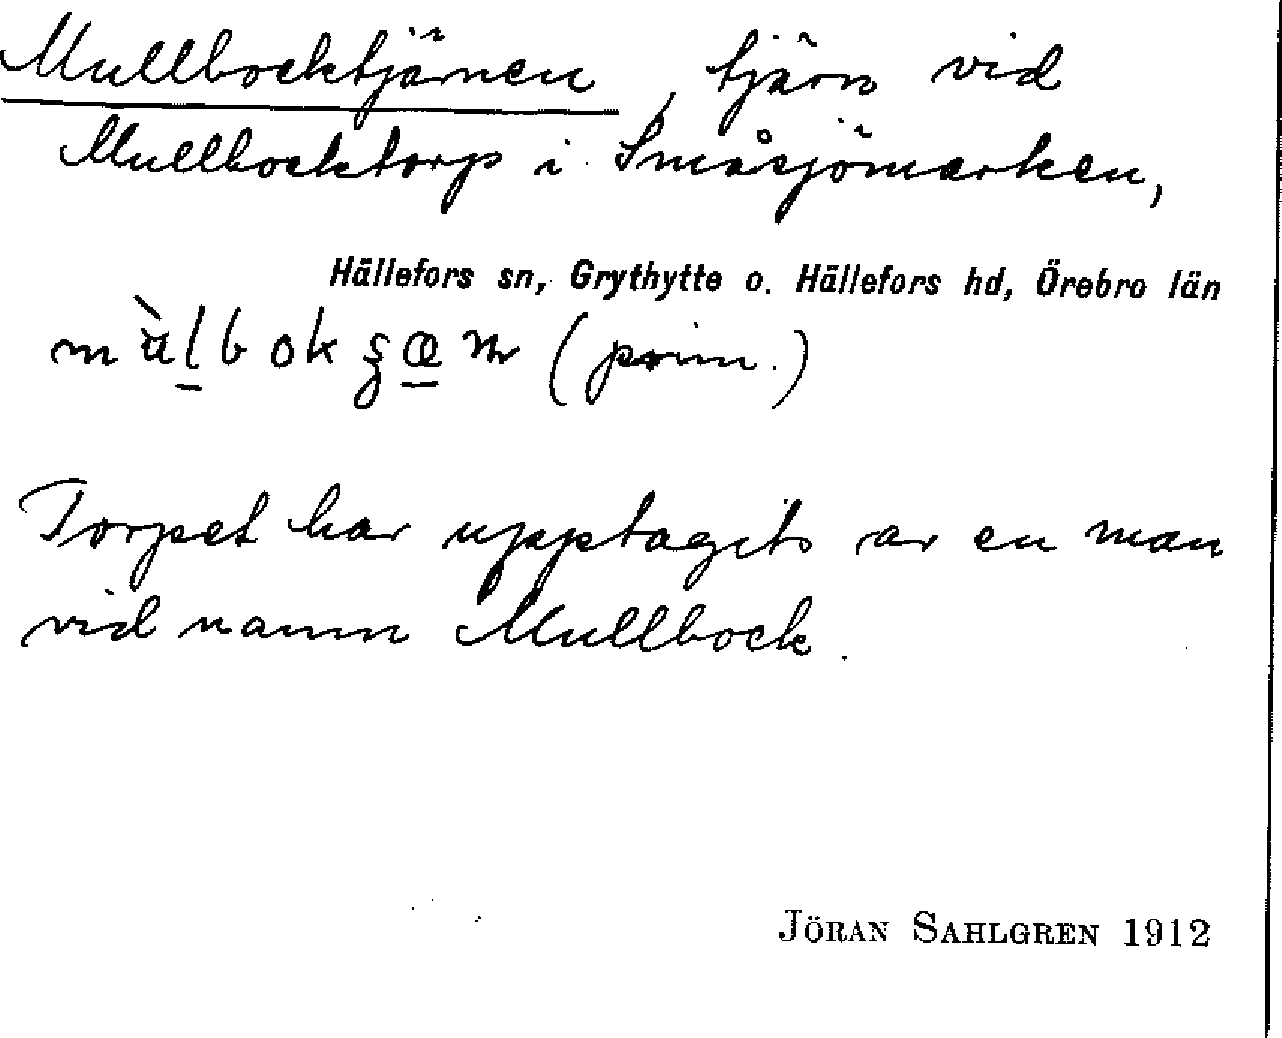 Mullbocktjärnen, tjärn vid
Mullbocktorp i Småsjömarken,
Hällefors sn, Grythytte o. Hällefors hd, Örebro län
(prim.)
Torpet har upptagits av en man
vid namn Mullbock.
JÖRAN SAHLGREN 1912